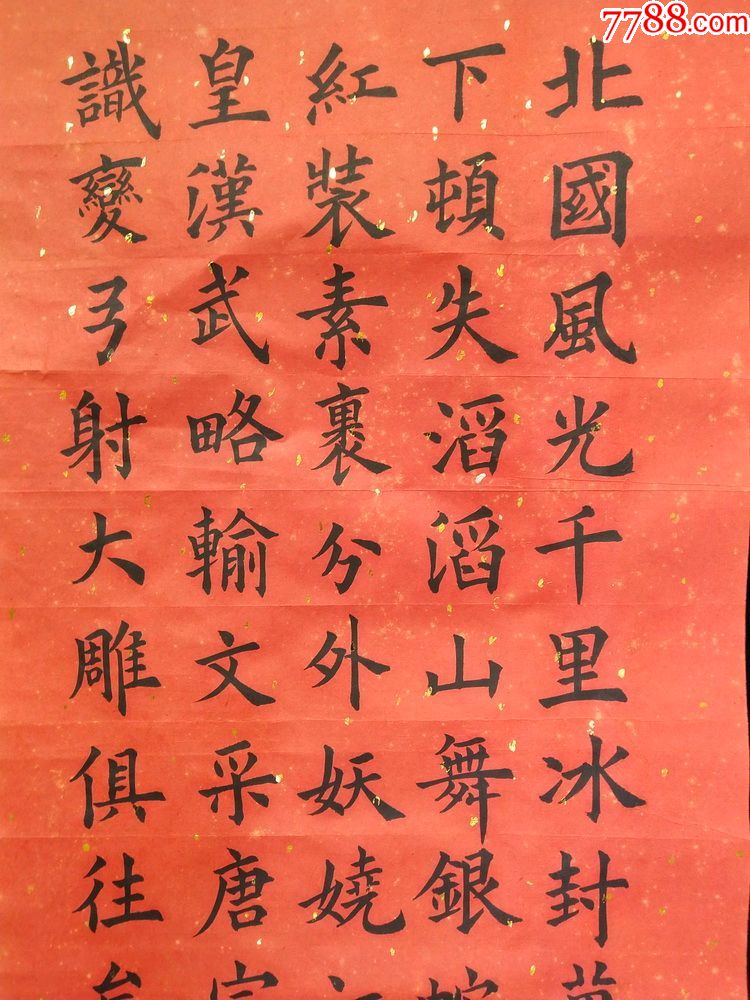 7788.com
北國風光千里冰封
下頓失滔滔山舞銀
紅裝素裹分外妖嬈
皇漢武略輸文采唐
識變弓射大雕俱往